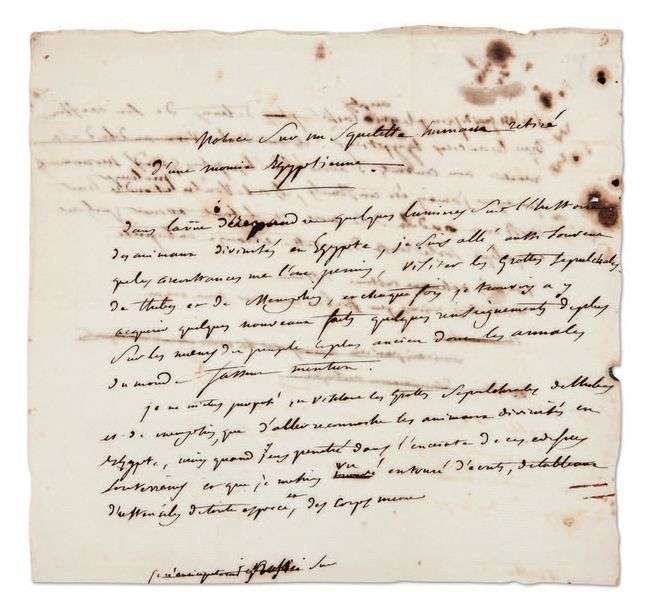 Notice sur un squelette humain retiré
d'une momie Egyptienne.
dans la vue de répandre quelques lumieres sur l'histoire
des animaux divinités en Egypte, je suis allé aussi souvent
que les circonstances me l'ont permis, visiter les Grottes sepulcrales
de thebes et de Memphis, et chaque fois je trouvay a y
acquerir quelques nouveaux faits quelques renseignements de plus
sur les moeurs du peuple le plus ancien dont les annales
du monde fassent mention.
je ne m'etois proposé en visitant les Grottes Sepulchrales de thebes
et de memphis, que d'aller reconnoitre les animaux divinités en
Egypte, mais quand j'eus penetré dans l'enceinte de ces edifices
souterrains et que je me vis entouré d'ecrits, de tableaux
de toute espece, et des corps meme
sur